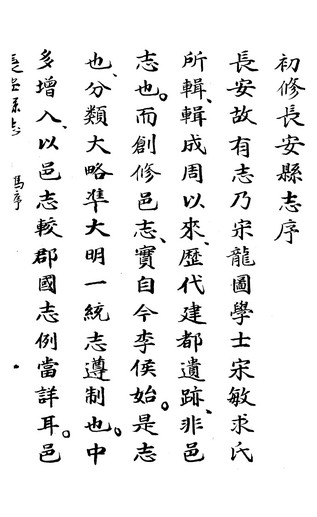 初修長安縣志序
長安故有志乃宋龍圖學士宋敏求氏
所輯、輯成周以來、歷代建都遺跡、非邑
志也。而創修邑志、實自今李侯始。是志
也、分類大略準大明一統志遵制也。中
多增入、以邑志較郡國志例當詳耳。邑
長安縣志 馬序